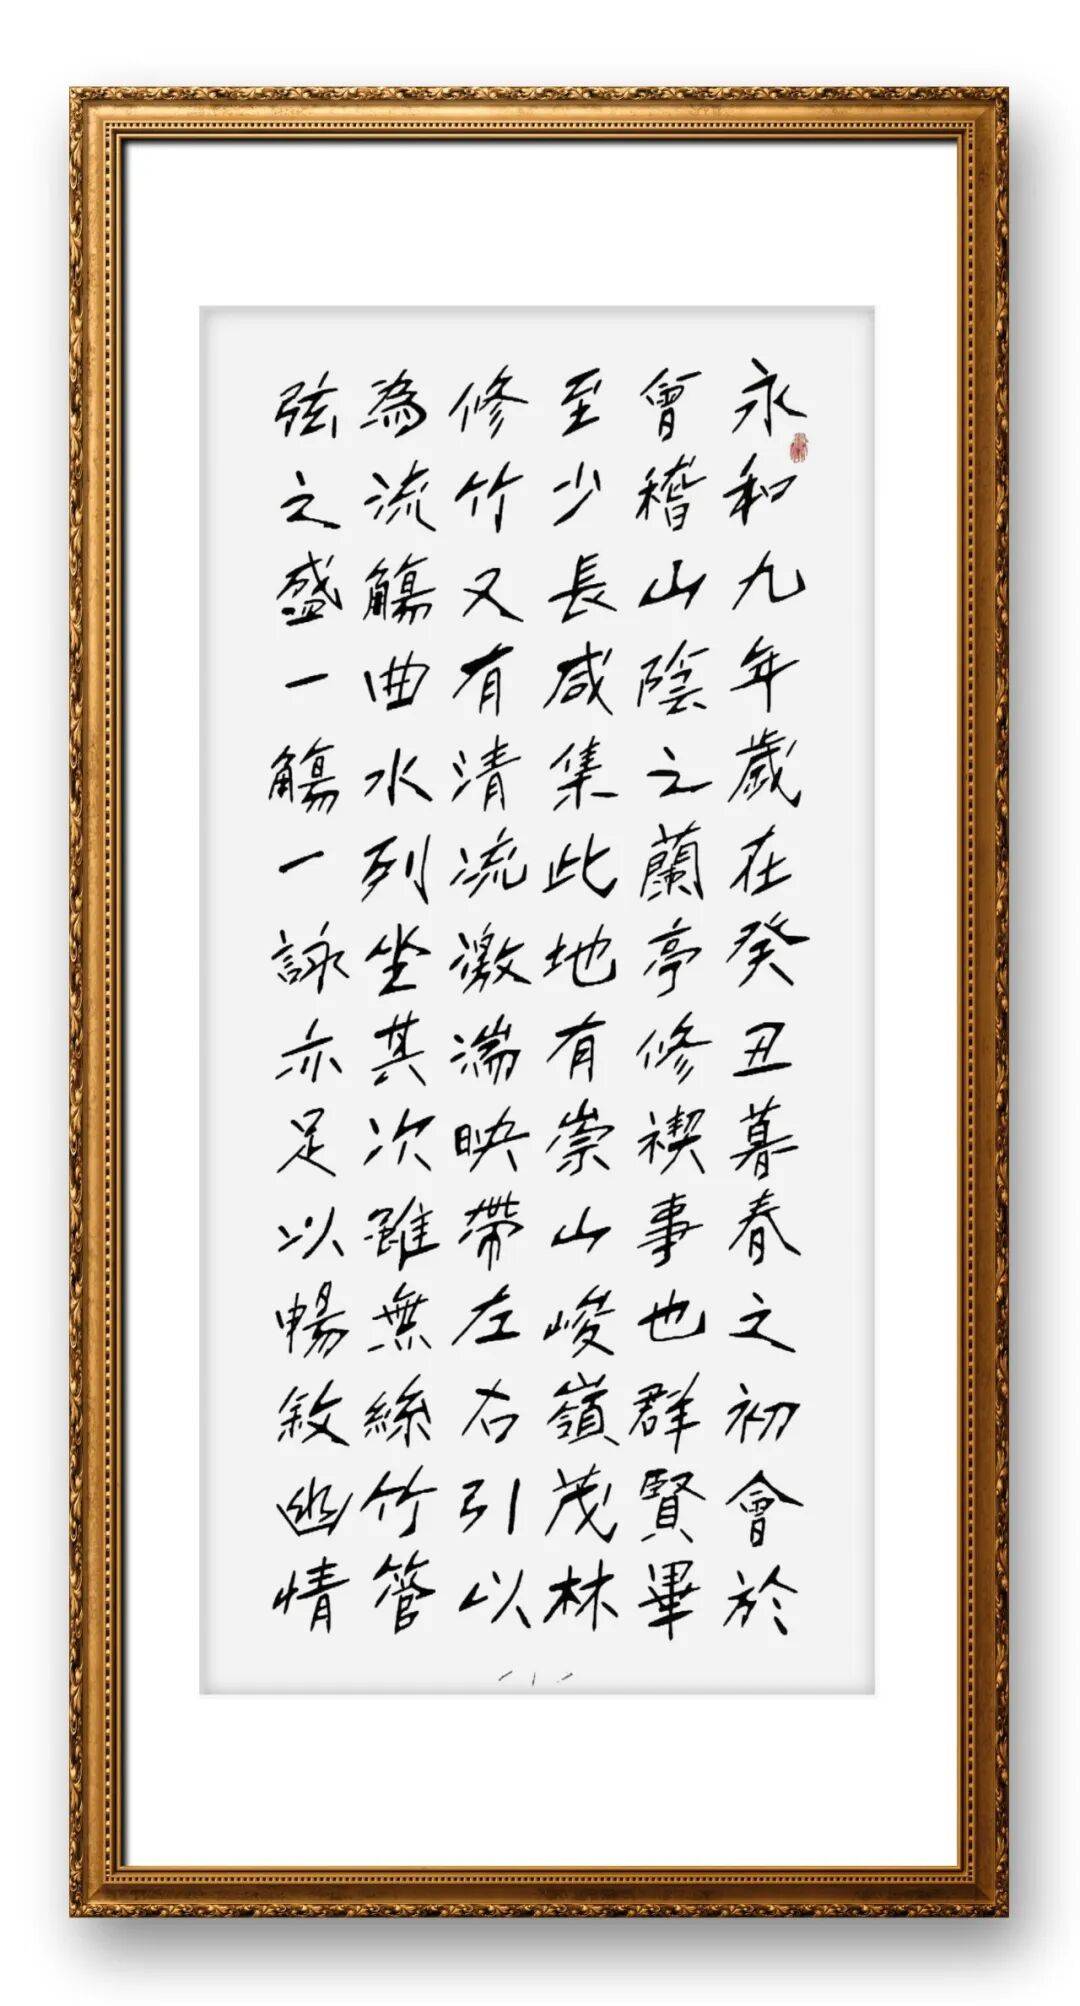 永和九年歲在癸丑暮春之初會於
會稽山陰之蘭亭修禊事也群賢畢
至少長咸集此地有崇山峻嶺茂林
修竹又有清流激湍映帶左右引以
為流觴曲水列坐其次雖無絲竹管
弦之盛一觴一詠亦足以暢敘幽情